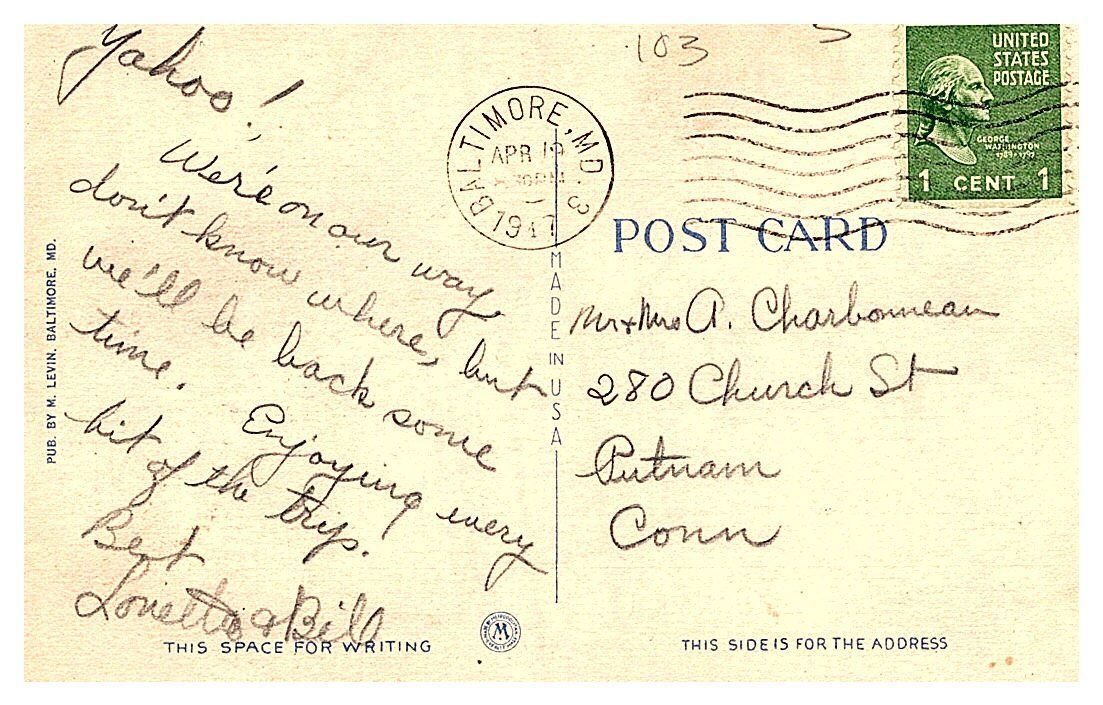 Yahoo!
We're on our way,
don't know where, but
we'll be back some
time. Enjoying every
bit of the trip.
Best
Loretta & Bill
THIS SPACE FOR WRITING
PUB. BY M. LEVIN, BALTIMORE, MD.
MADE IN U S A
103
BALTIMORE, MD. 3
APR
1947
UNITED
STATES
POSTAGE
GEORGE
WASHINGTON
1789-1797
1 CENT 1
POST CARD
Mr & Mrs A. Charbonneau
280 Church St
Putnam
Conn
THIS SIDE IS FOR THE ADDRESS